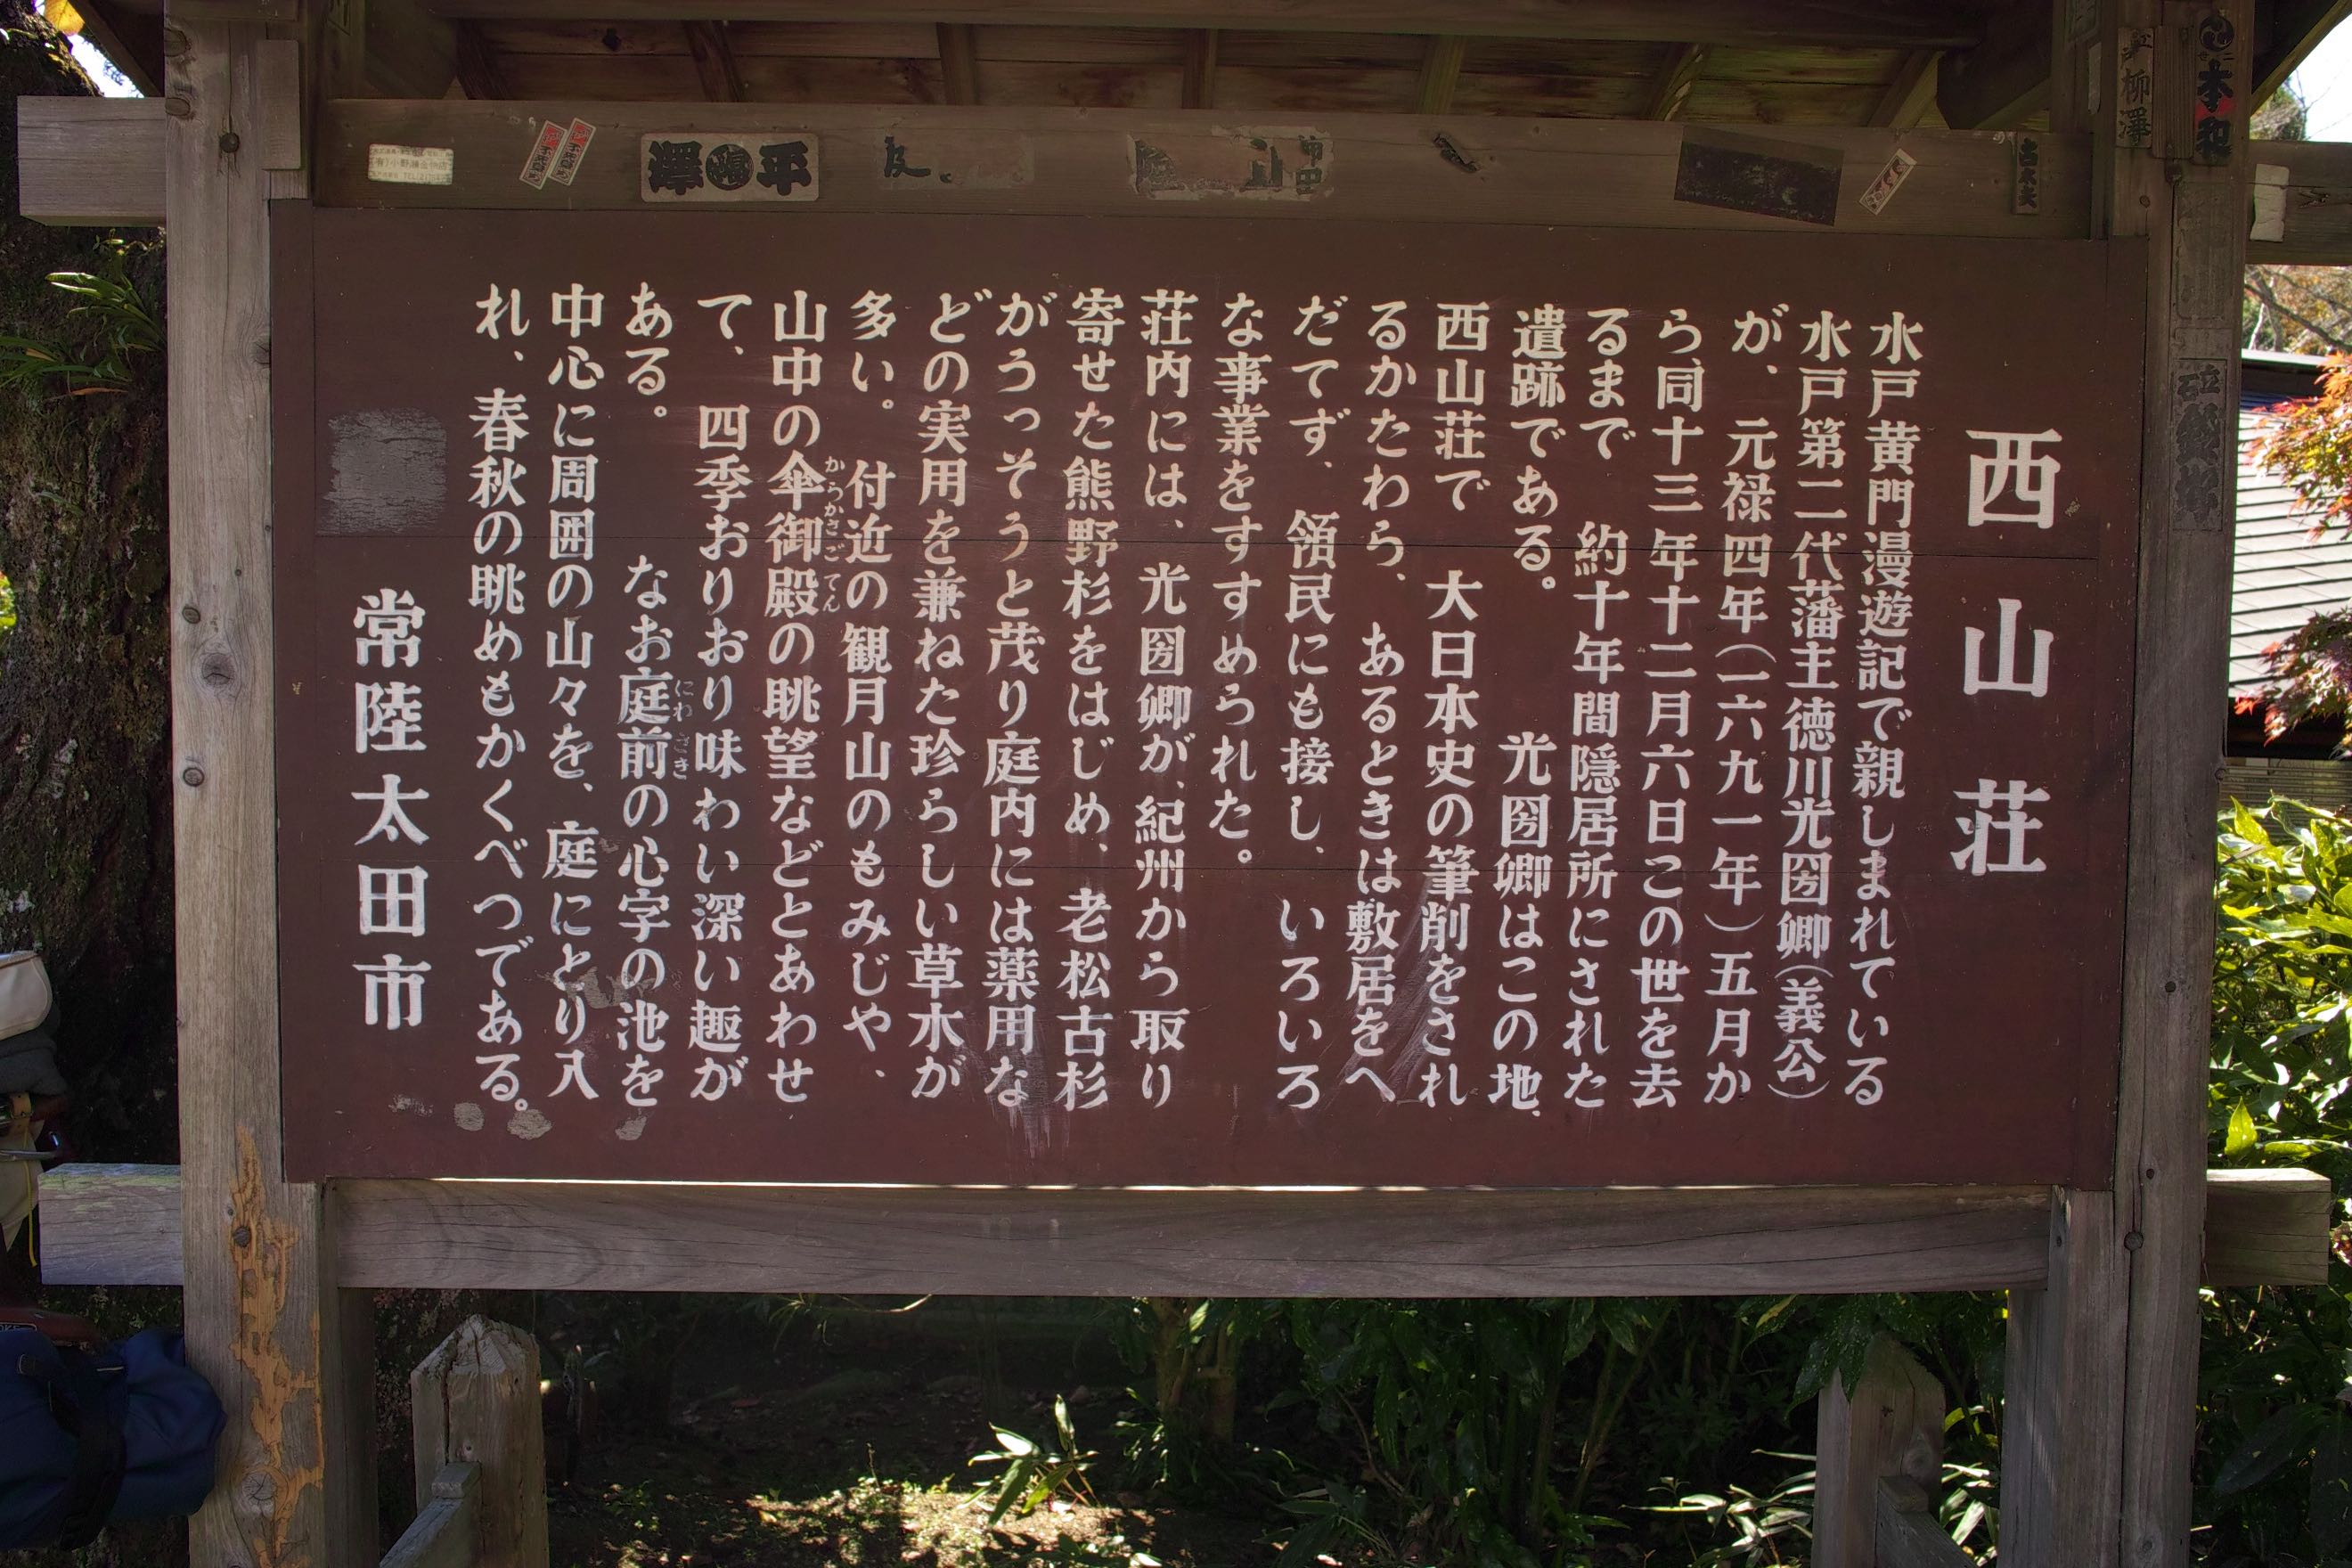 西山荘
水戸黄門漫遊記で親しまれている
水戸第二代藩主徳川光圀卿(義公)
が、元禄四年(一六九一年)五月か
ら、同十三年十二月六日この世を去
るまで 約十年間隠居所にされた
遺跡である。 光圀卿はこの地、
西山荘で 大日本史の筆削をされ
るかたわら、あるときは敷居をへ
だてず、領民にも接し、いろいろ
な事業をすすめられた。
荘内には、光圀卿が、紀州から取り
寄せた熊野杉をはじめ、老松古杉
がうっそうと茂り庭内には薬用な
どの実用を兼ねた珍らしい草木が
多い。付近の観月山のもみじや、
山中の傘御殿の眺望などとあわせ
からかさごてん
て、四季おりおり味わい深い趣が
ある。 なお庭前の心字の池を
にわざき
中心に周囲の山々を、庭にとり入
れ、春秋の眺めもかくべつである。
常陸太田市
平 澤
柳澤
本和